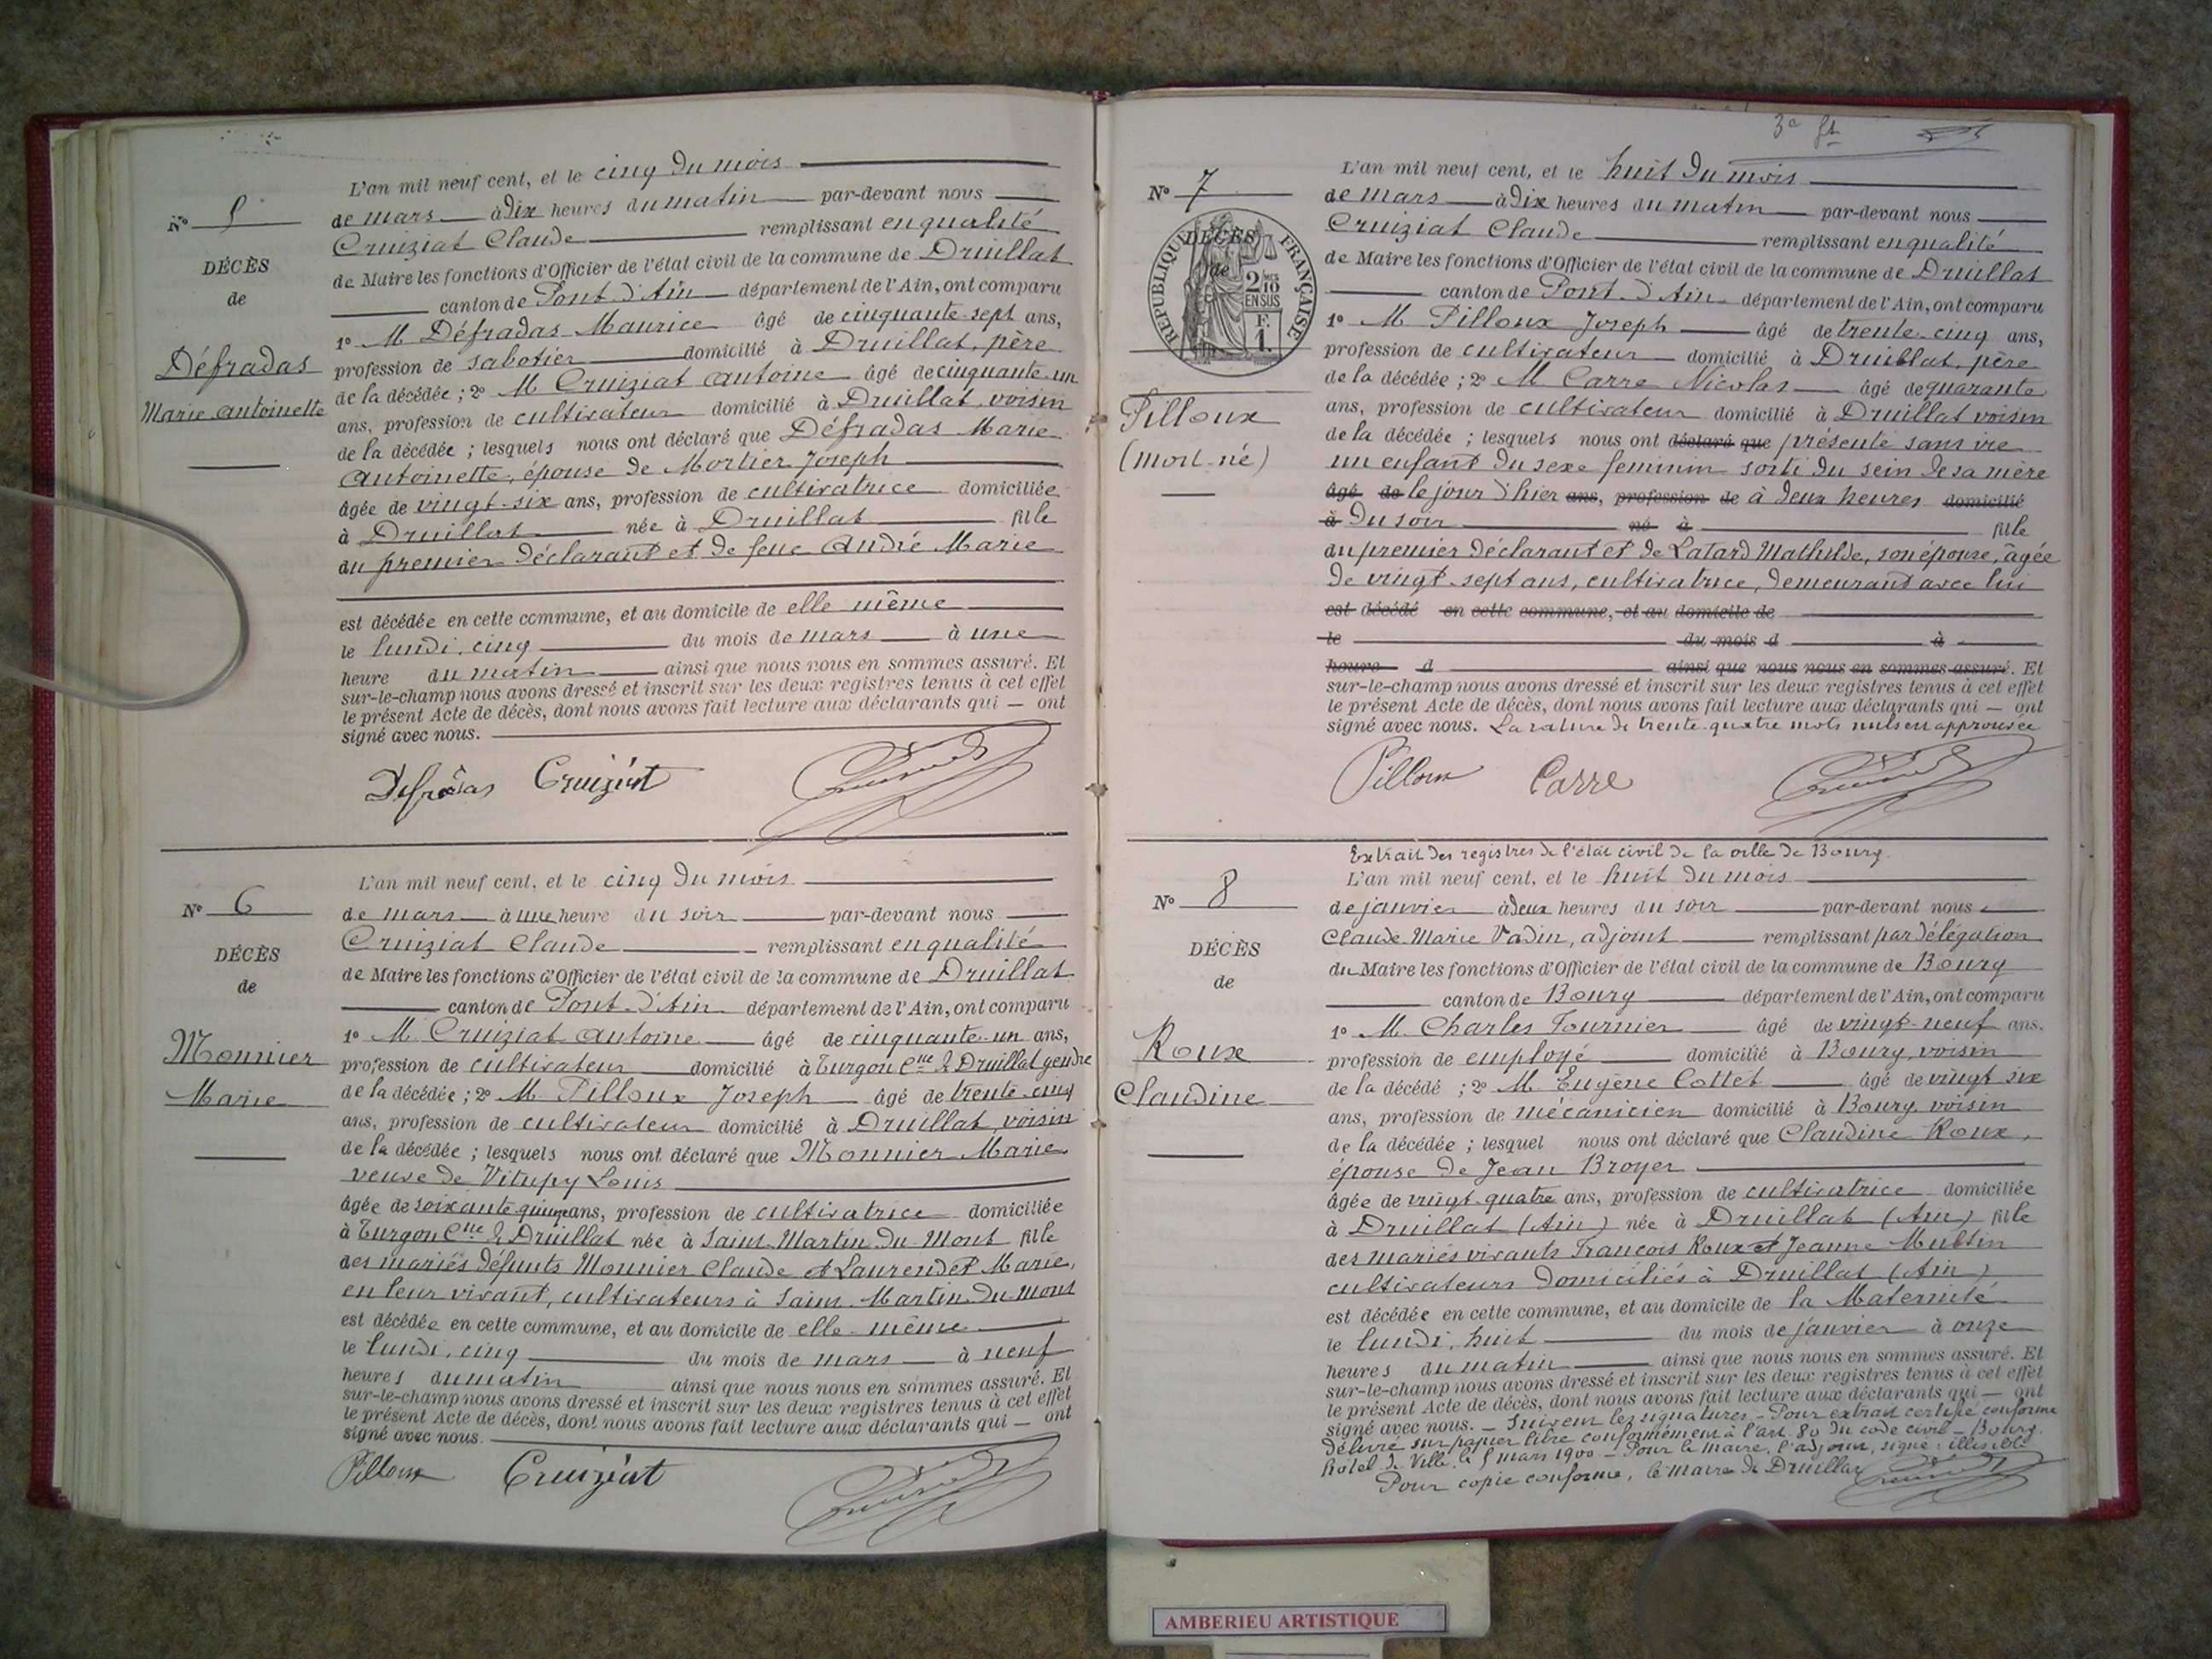 N° 5
DÉCÈS
de
Défradas
Marie Antoinette
L'an mil neuf cent, et le cinq du mois
de mars à dix heures du matin par-devant nous
Cruiziat Claude remplissant en qualité
de Maire les fonctions d'Officier de l'état civil de la commune de Druillat
canton de Pont-d'Ain département de l'Ain, ont comparu
1° M Défradas Maurice âgé de cinquante-sept ans,
profession de sabotier domicilié à Druillat, père
de la décédée ; 2° M Cruiziat Antoine âgé de cinquante-un
ans, profession de cultivateur domicilié à Druillat, voisin
de la décédée ; lesquels nous ont déclaré que Défradas Marie
Antoinette, épouse de Mortier Joseph
âgée de vingt-six ans, profession de cultivatrice domiciliée
à Druillat née à Druillat fille
du premier déclarant et de feue André Marie
est décédée en cette commune, et au domicile de elle même
le lundi, cinq du mois de mars à une
heure du matin ainsi que nous nous en sommes assuré. Et
sur-le-champ nous avons dressé et inscrit sur les deux registres tenus à cet effet
le présent Acte de décès, dont nous avons fait lecture aux déclarants qui — ont
signé avec nous.
Defradas Cruiziat
N° 6
DÉCÈS
de
Monnier
Marie
L'an mil neuf cent, et le cinq du mois
de mars à une heure du soir par-devant nous
Cruiziat Claude remplissant en qualité
de Maire les fonctions d'Officier de l'état civil de la commune de Druillat
canton de Pont-d'Ain département de l'Ain, ont comparu
1° M. Cruiziat Antoine âgé de cinquante-un ans,
profession de cultivateur domicilié à Turgon Cne de Druillat gendre
de la décédée ; 2° M Pilloux Joseph âgé de trente-cinq
ans, profession de cultivateur domicilié à Druillat, voisin
de la décédée ; lesquels nous ont déclaré que Monnier Marie
veuve de Vitupy Louis
âgée de soixante quinze ans, profession de cultivatrice domiciliée
à Turgon Cne de Druillat née à Saint-Martin-du-Mont fille
des mariés défunts Monnier Claude et Laurendet Marie,
en leur vivant, cultivateurs à Saint-Martin-du-Mont
est décédée en cette commune, et au domicile de elle-même
le lundi, cinq du mois de mars à neuf
heures du matin ainsi que nous nous en sommes assuré. Et
sur-le-champ nous avons dressé et inscrit sur les deux registres tenus à cet effet
le présent Acte de décès, dont nous avons fait lecture aux déclarants qui — ont
signé avec nous.
Pilloux Cruiziat
N° 7
RÉPUBLIQUE FRANÇAISE
DÉCÈS
de
2/10
EN SUS
F.
1.
Pilloux
(mort-né)
L'an mil neuf cent, et le huit du mois
de mars à dix heures du matin par-devant nous
Cruiziat Claude remplissant en qualité
de Maire les fonctions d'Officier de l'état civil de la commune de Druillat
canton de Pont-d'Ain département de l'Ain, ont comparu
1° M Pilloux Joseph âgé de trente-cinq ans,
profession de cultivateur domicilié à Druillat, père
de la décédée ; 2° M. Carre Nicolas âgé de quarante
ans, profession de cultivateur domicilié à Druillat voisin
de la décédée ; lesquels nous ont déclaré que présenté sans vie
un enfant du sexe féminin sorti du sein de sa mère
âgé de le jour d'hier ans, profession de à deux heures domicilié
à du soir né à fille
du premier déclarant et de Latard Mathilde, son épouse, âgée
de vingt-sept ans, cultivatrice, demeurant avec lui
est décédé en cette commune, et au domicile de
le du mois d à
heure d ainsi que nous nous en sommes assuré. Et
sur-le-champ nous avons dressé et inscrit sur les deux registres tenus à cet effet
le présent Acte de décès, dont nous avons fait lecture aux déclarants qui — ont
signé avec nous. La rature de trente-quatre mots nuls en approuvée
Pilloux Carre
N° 8
DÉCÈS
de
Roux
Claudine
Extrait des registres de l'état civil de la ville de Bourg.
L'an mil neuf cent, et le huit du mois
de janvier à deux heures du soir par-devant nous
Claude Marie Vadin, adjoint remplissant par délégation
du Maire les fonctions d'Officier de l'état civil de la commune de Bourg
canton de Bourg département de l'Ain, ont comparu
1° M. Charles Fournier âgé de vingt-neuf ans,
profession de employé domicilié à Bourg, voisin
de la décédé ; 2° M Eugène Cottet âgé de vingt six
ans, profession de mécanicien domicilié à Bourg, voisin
de la décédée ; lesquel nous ont déclaré que Claudine Roux,
épouse de Jean Broyer
âgée de vingt-quatre ans, profession de cultivatrice domiciliée
à Druillat (Ain) née à Druillat (Ain) fille
des mariés vivants François Roux et Jeanne Mublin
cultivateurs domiciliés à Druillat (Ain)
est décédée en cette commune, et au domicile de la Maternité
le lundi, huit du mois de janvier à onze
heures du matin ainsi que nous nous en sommes assuré. Et
sur-le-champ nous avons dressé et inscrit sur les deux registres tenus à cet effet
le présent Acte de décès, dont nous avons fait lecture aux déclarants qui — ont
signé avec nous. — Suivent les signatures — Pour extrait certifié conforme
délivré sur papier libre conformément à l'art. 80 du code civil — Bourg,
hôtel de Ville, le 5 mars 1900 — Pour le maire, l'adjoint, signé : illisible
Pour copie conforme, le maire de Druillat
AMBERIEU ARTISTIQUE